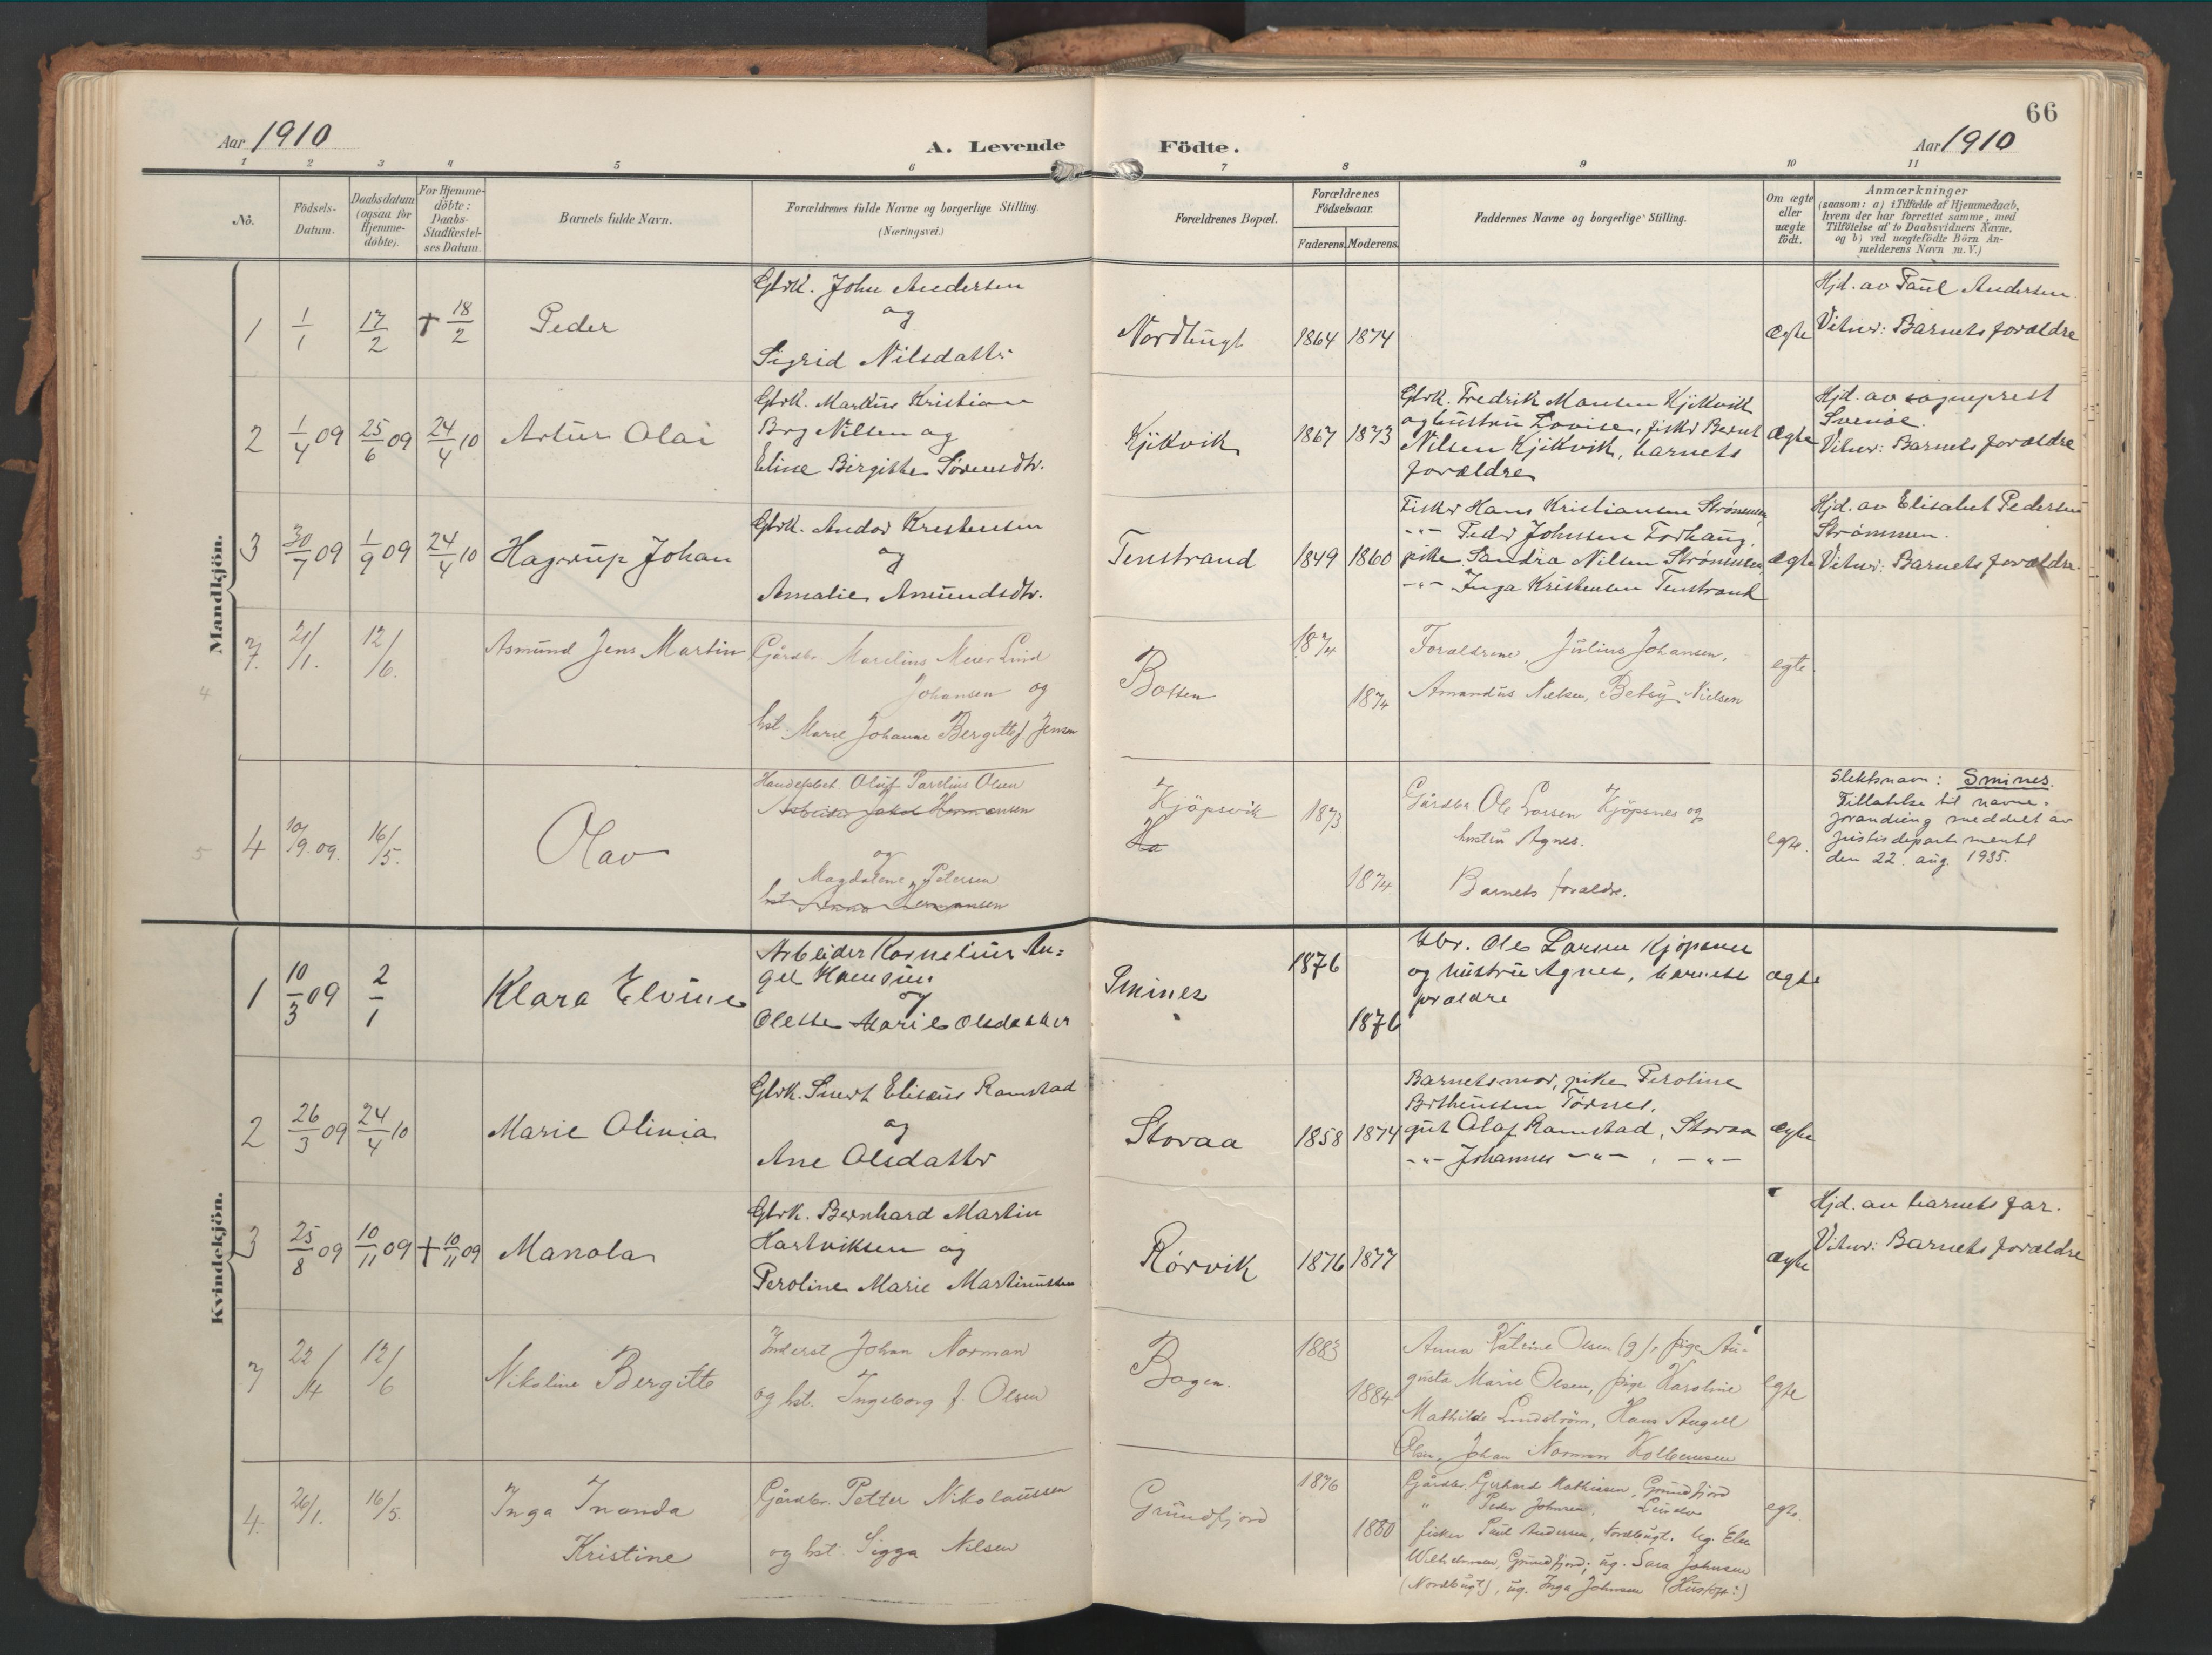 66
Aar 1910
A. Levende Födte.
Aar 1910
1 2 3 4 5 6 7 8 9 10 11
No.
Födsels-
Datum.
Daabsdatum
(ogsaa for
Hjemme-
döbte).
For Hjemme-
döbte:
Daabs-
Stadfæstel-
ses Datum.
Barnets fulde Navn.
Forældrenes fulde Navne og borgerlige Stilling.
(Næringsvei.)
Forældrenes Bopæl.
Forældrenes
Födselsaar.
Faderens. Moderens.
Faddernes Navne og borgerlige Stilling.
Om ægte
eller
uægte
födt.
Anmærkninger
(saasom: a) i Tilfælde af Hjemmedaab,
hvem der har forrettet samme, med
Tilföielse af to Daabsvidners Navne,
og b) ved uægtefödte Börn An-
melderens Navn m. V.)
Mandkjön.
1 1/1 17/2 + 18/2 Peder
Gbrk. John Andersen
og
Sigrid Nilsdattr
Nordbugt 1864 1874
ægte
Hjd. av Paul Andersen
Vitner: Barnets forældre
2 1/4 09 25/6 09 24/4 10 Artur Olai
Gbrk. Markus Kristian
Brg Nilsen og
Eline Birgitte Sørensdtr.
Kjikvik 1867 1873
Gbrk. Fredrik Monsen Kjikvik
og hustru Lovise, fisker Bernt
Nilsen Kjikvik, barnets
forældre
ægte
Hjd. av sogneprest
Svenøe.
Vitner: Barnets forældre
3 30/7 09 1/9 09 24/4 10 Hagerup Johan
Gbrk. Andor Kristensen
og
Amalie Amundsdtr.
Tenstrand 1849 1860
Fisker Hans Kristiansen Strømmen
-"- Peder Johnsen Forhaug.
pike Sandra Nilsen Strømmen
-"- Inga Kristensen Tenstrand
ægte
Hjd. av Elisabet Pedersen
Strømmen.
Vitner: Barnets forældre.
7. 21/1. 12/6. Asmund Jens Martin
4
Gårdbr Marelius Meier Lind
Johansen og
hst. Marie Johanne Bergitte f. Jensen
Botten 1874
1874
Forældrene, Julius Johansen,
Amandus Nielsen, Betsy Nielsen
egte
5
4 10/9.09. 16/5. Olav
Handelsbet. Oluf Parelius Olsen
Arbeider Jakob Hermansen
og
Magdalene Petersen
Kjöpsvik
Ha
1873
1874
Gårdbr Ole Larsen Kjöpsnes og
hustru Agnes.
Barnets forældre.
egte.
Slektsnavn: Smines.
Tillatelse til navne-
forandring meddelt av
Justisdepartementet
den 22. aug. 1935.
Kvindekjön.
1 10/3 09 2/1 Klara Elvine
Arbeider Kornelius An-
gel Hamsun
og
Olette Marie Olsdatter
Smines 1876
1876
Gbr. Ole Larsen Kjøpsnes
og hustru Agnes, barnets
forældre
ægte
2 26/3 09 24/4 10 Marie Olivia
Gbrk. Snert Elisæus Ramstad
og
Ane Olsdatter
Storaa 1858 1874
Barnets mor, pike Peroline
Berthinssen Tørnes.
gut Olaf Ramstad, Storaa
-"- Johannes -"- , -"-
ægte
3 25/8 09 10/11 09 + 10/11 09 Manola
Gbrk. Bernhard Martin
Hartviksen og
Peroline Marie Martinussen
Rørvik 1876 1877
ægte
Hjd. av barnets far.
Vitner: Barnets forældre
7 22/4 12/6 Nikoline Bergitte
Inderst Johan Norman
og hst. Ingeborg f. Olsen
Bogen. 1883
1884
Anna Katrine Olsen (g), pige Au-
gusta Marie Olsen, pige Karoline
Mathilde Lindström, Hans Angell
Olsen, Johan Norman Kolbensen
egte
4. 26/1. 16/5. Inga Inanda
Kristine
Gårdbr. Petter Nikolaussen
og hst. Sigga Nilsen
Grundfjord 1876
1880
Gårdbr. Gerhard Mathisen, Grundfjord
" Peder Johnsen,
fisker Paul Andersen, Nordbugt. Ug. Elen
Wilhelmsen, Grundfjord; ug. Sara Johnsen
(Nordbugt), ug. Inga Johnsen
egte.